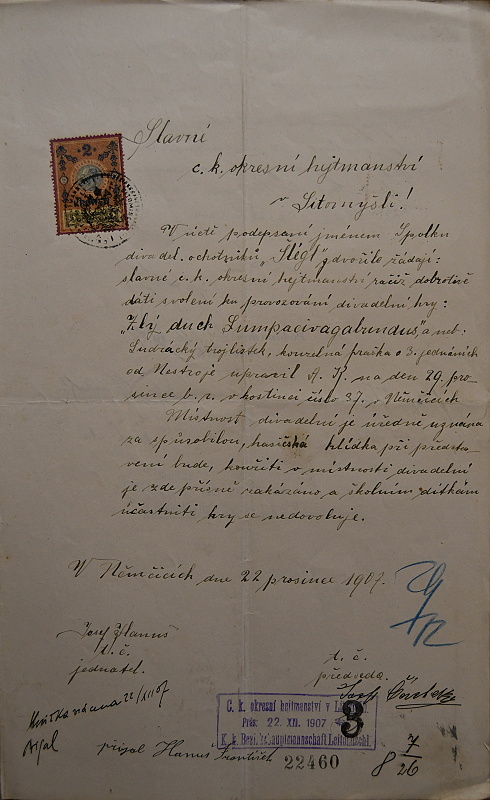 2
Slavné
c. k. okresní hejtmanství
v Litomyšli!
V úctě podepsaní jménem Spolku
divadel. ochotníků „Šlégl" zdvořile žádají:
slavné c. k. okresní hejtmanství račiž dobrotivě
dáti svolení ku provozování divadelní hry:
„Zlý duch Lumpacivagabundus" a neb:
Ludrácký trojlístek, kouzelná fraška o 3. jednáních
od Nestroje upravil A. K. na den 29. pro-
since b. r. v hostinci číslo 37. v Němčicích
Místnost divadelní je úředně uznána
za způsobilou, hasičská hlídka při předsta-
vení bude, kouřiti v místnosti divadelní
je zde přísně zakázáno a školním dítkám
účastniti hry se nedovoluje.
V Němčicích dne 22 prosince 1907.
Josef Hanuš
t. č.
jednatel.
t. č.
předseda.
Josef
22/12 07
přijal Hanuš František
C. k. okresní hejtmanství v
Präs. 22. XII. 1907
K. k. Bezirkshauptmannschaft Leitomischl
3
22460
8 7/26